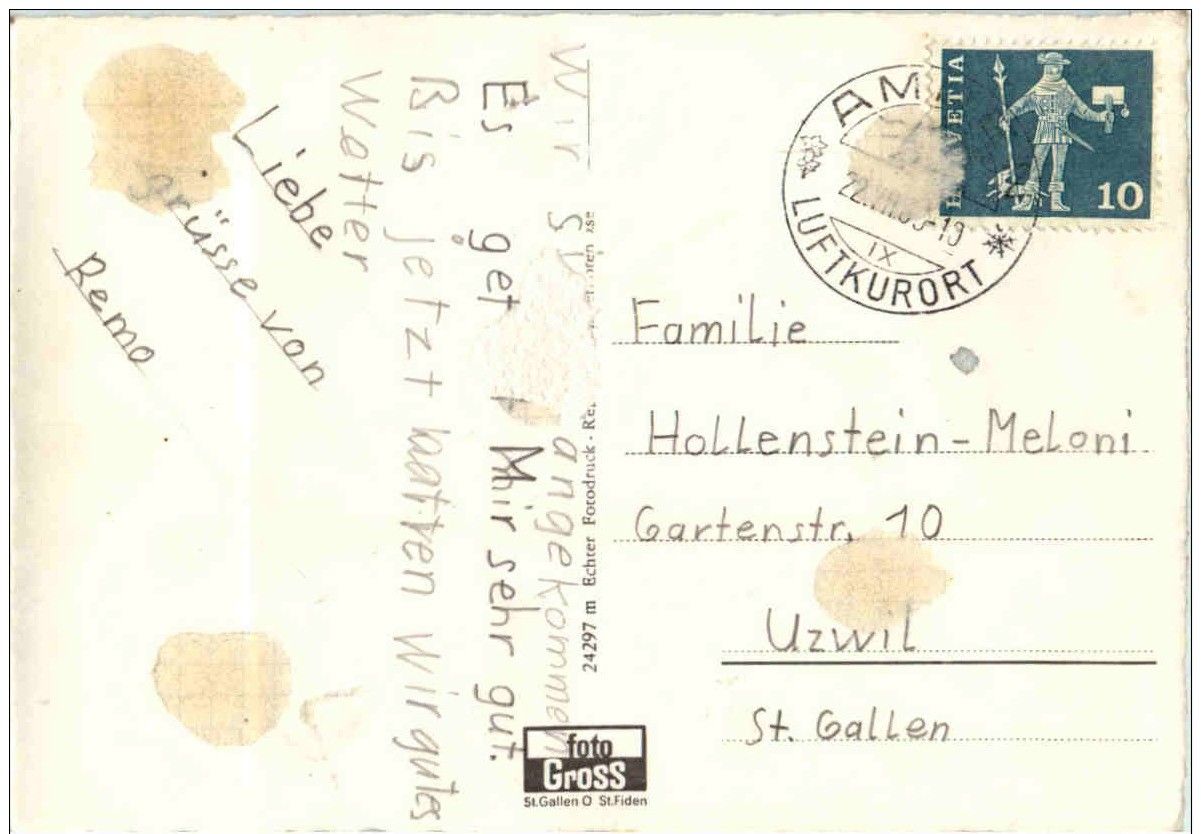 Wir
angekommen
Es get Mir sehr gut.
Bis jetzt hatten Wir gutes
Wetter
Liebe
grüsse von
Remo
24297 m Echter Fotodruck
foto
Gross
St.Gallen O St.Fiden
HELVETIA
10
LUFTKURORT
IX
Familie
Hollenstein-Meloni
Gartenstr. 10
Uzwil
St. Gallen